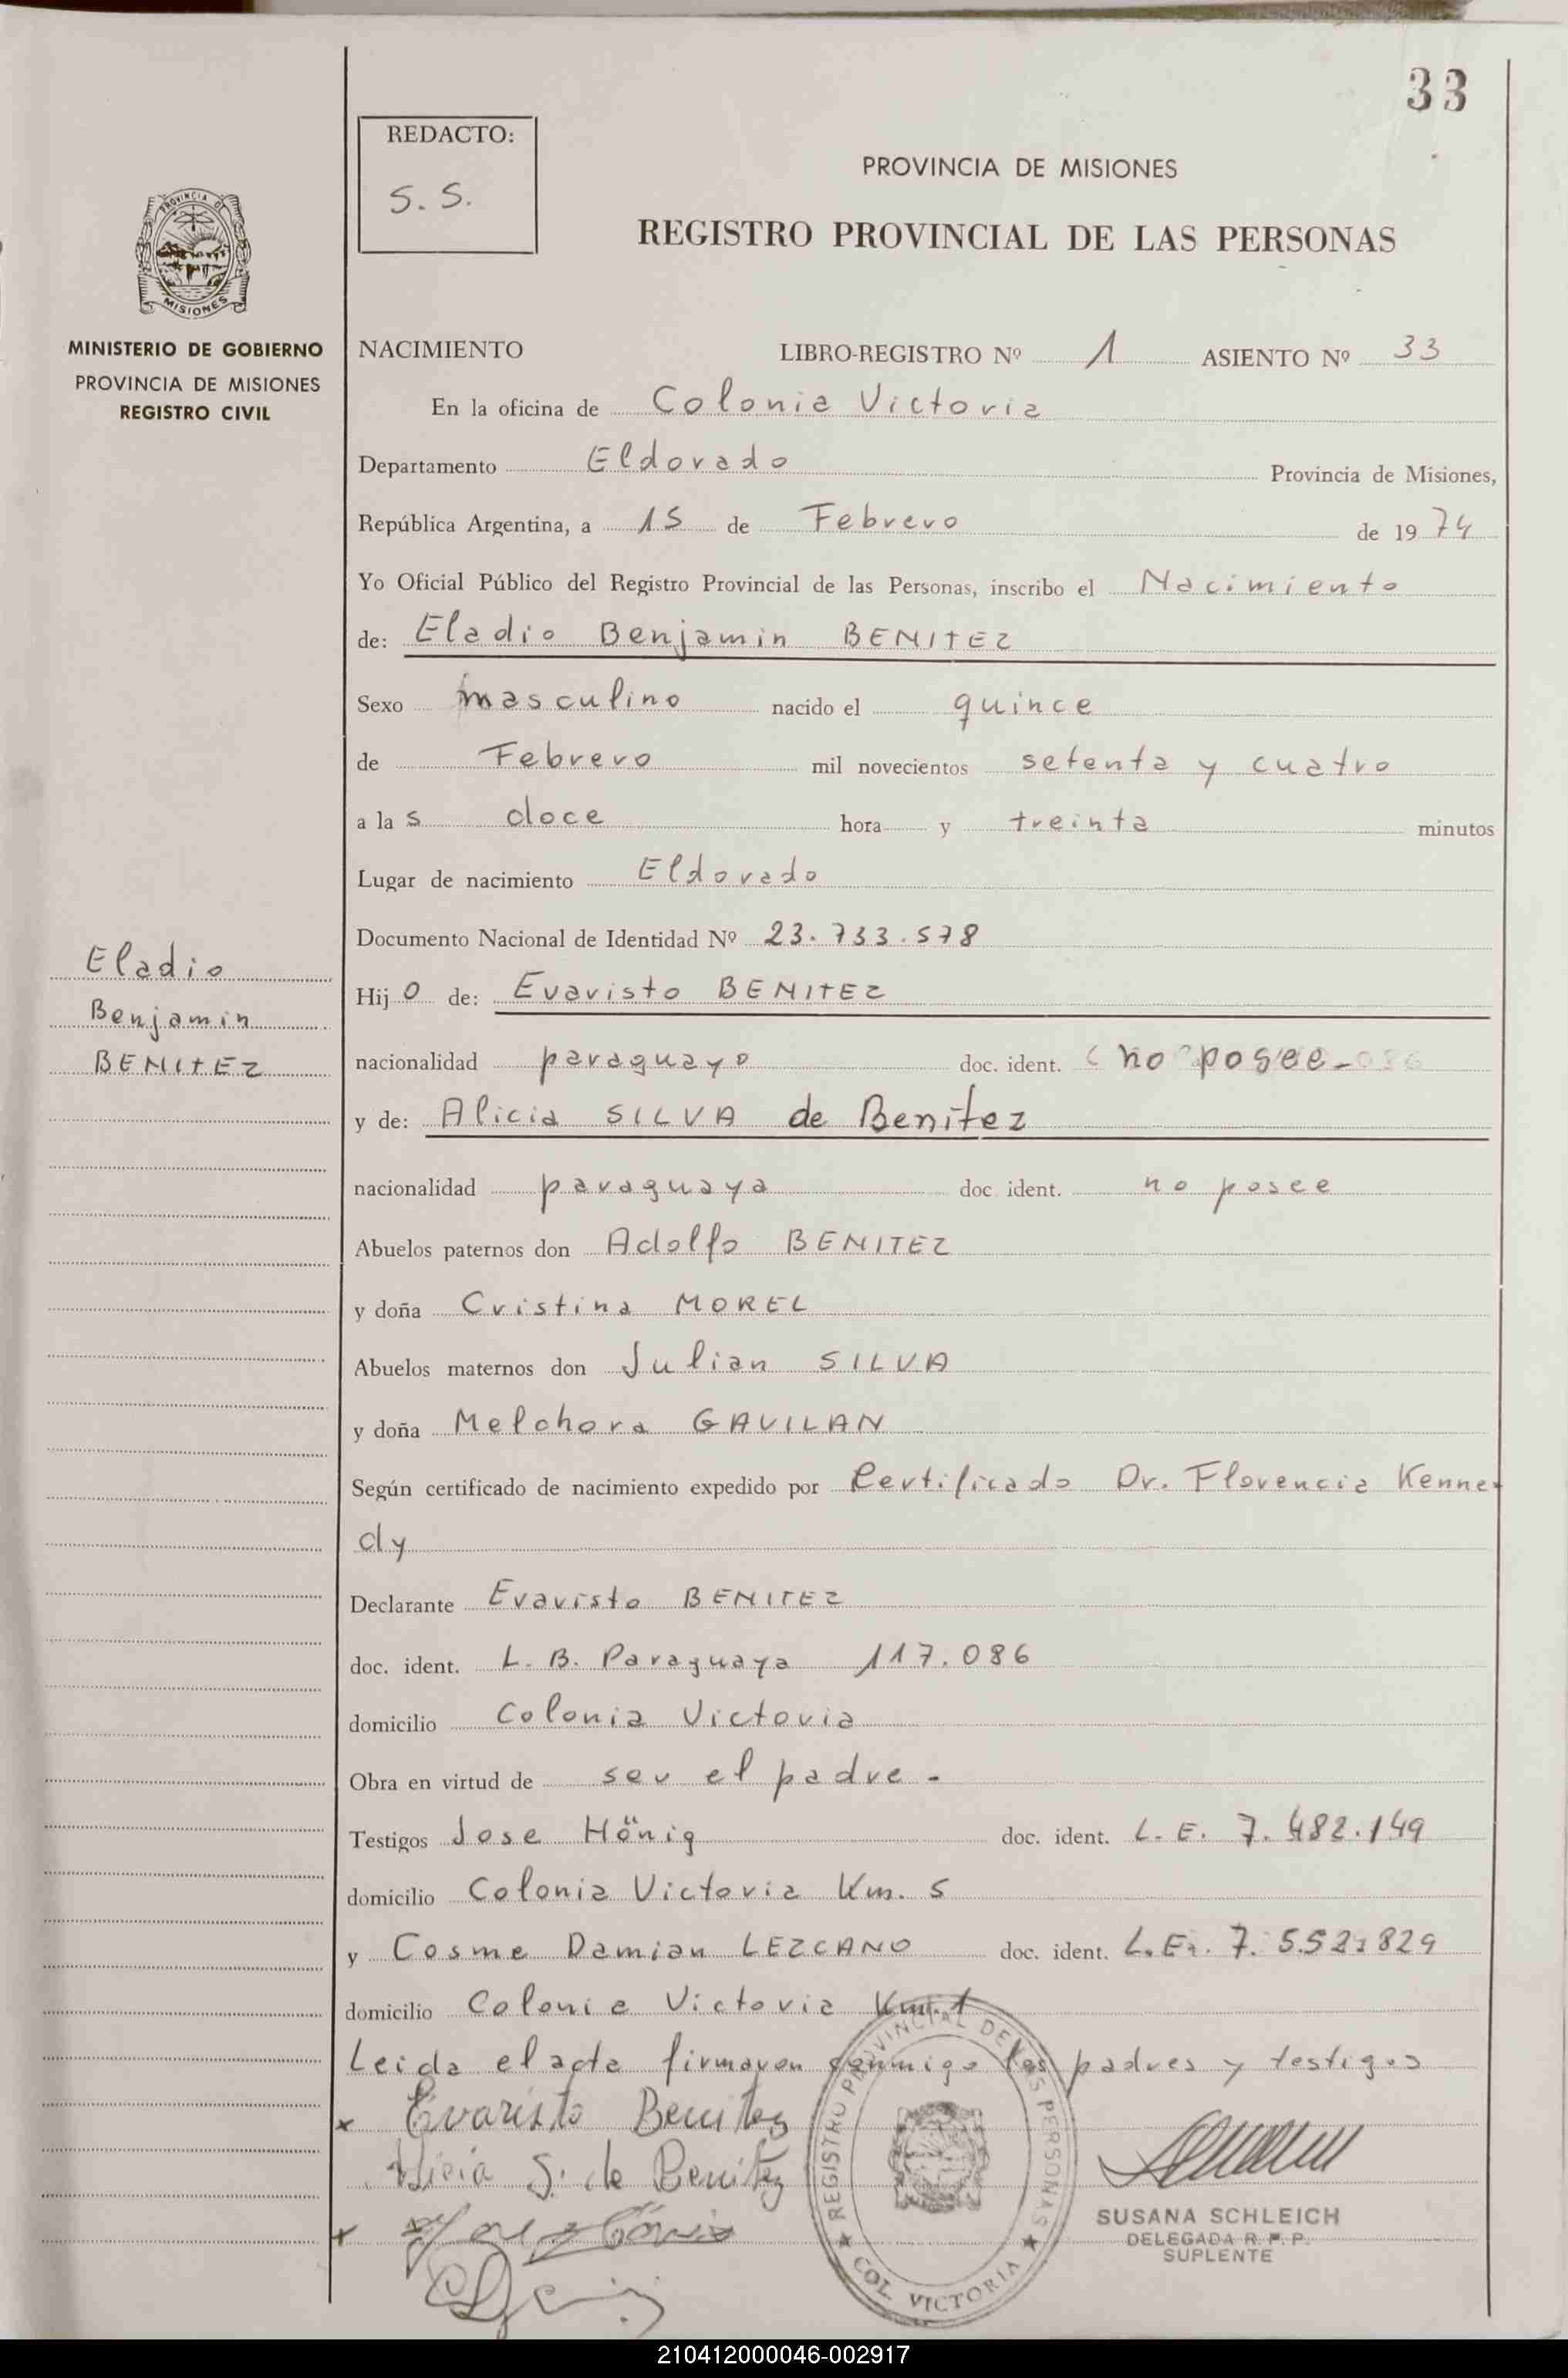 33
REDACTO:
S. S.
PROVINCIA DE MISIONES
REGISTRO PROVINCIAL DE LAS PERSONAS
PROVINCIA DE
MISIONES
MINISTERIO DE GOBIERNO
PROVINCIA DE MISIONES
REGISTRO CIVIL
NACIMIENTO LIBRO-REGISTRO Nº 1 ASIENTO Nº 33
En la oficina de Colonia Victoria
Departamento Eldorado Provincia de Misiones,
República Argentina, a 15 de Febrero de 1974
Yo Oficial Público del Registro Provincial de las Personas, inscribo el Nacimiento
de: Eladio Benjamin BENITEZ
Sexo masculino nacido el quince
de Febrero mil novecientos setenta y cuatro
a las doce hora y treinta minutos
Lugar de nacimiento Eldorado
Documento Nacional de Identidad Nº 23.733.578
Eladio
Benjamin
BENITEZ
Hijo de: Evaristo BENITEZ
nacionalidad paraguayo doc. ident. no posee
y de: Alicia SILVA de Benitez
nacionalidad paraguaya doc. ident. no posee
Abuelos paternos don Adolfo BENITEZ
y doña Cristina MOREL
Abuelos maternos don Julian SILVA
y doña Melchora GAVILAN
Según certificado de nacimiento expedido por Certificado Dr. Florencia Kenne-
dy
Declarante Evaristo BENITEZ
doc. ident. L. B. Paraguaya 117.086
domicilio Colonia Victoria
Obra en virtud de ser el padre.-
Testigos Jose Hönig doc. ident. L. E. 7.482.149
domicilio Colonia Victoria Km. 5
y Cosme Damian LEZCANO doc. ident. L.E. 7.552.829
domicilio Colonia Victoria Km. 1
Leida el acta firmaron conmigo los padres y testigos
x Evaristo Benitez
Alicia S. de Benitez
x
REGISTRO PROVINCIAL DE LAS PERSONAS
COL. VICTORIA
SUSANA SCHLEICH
DELEGADA R. P. P.
SUPLENTE
210412000046-002917